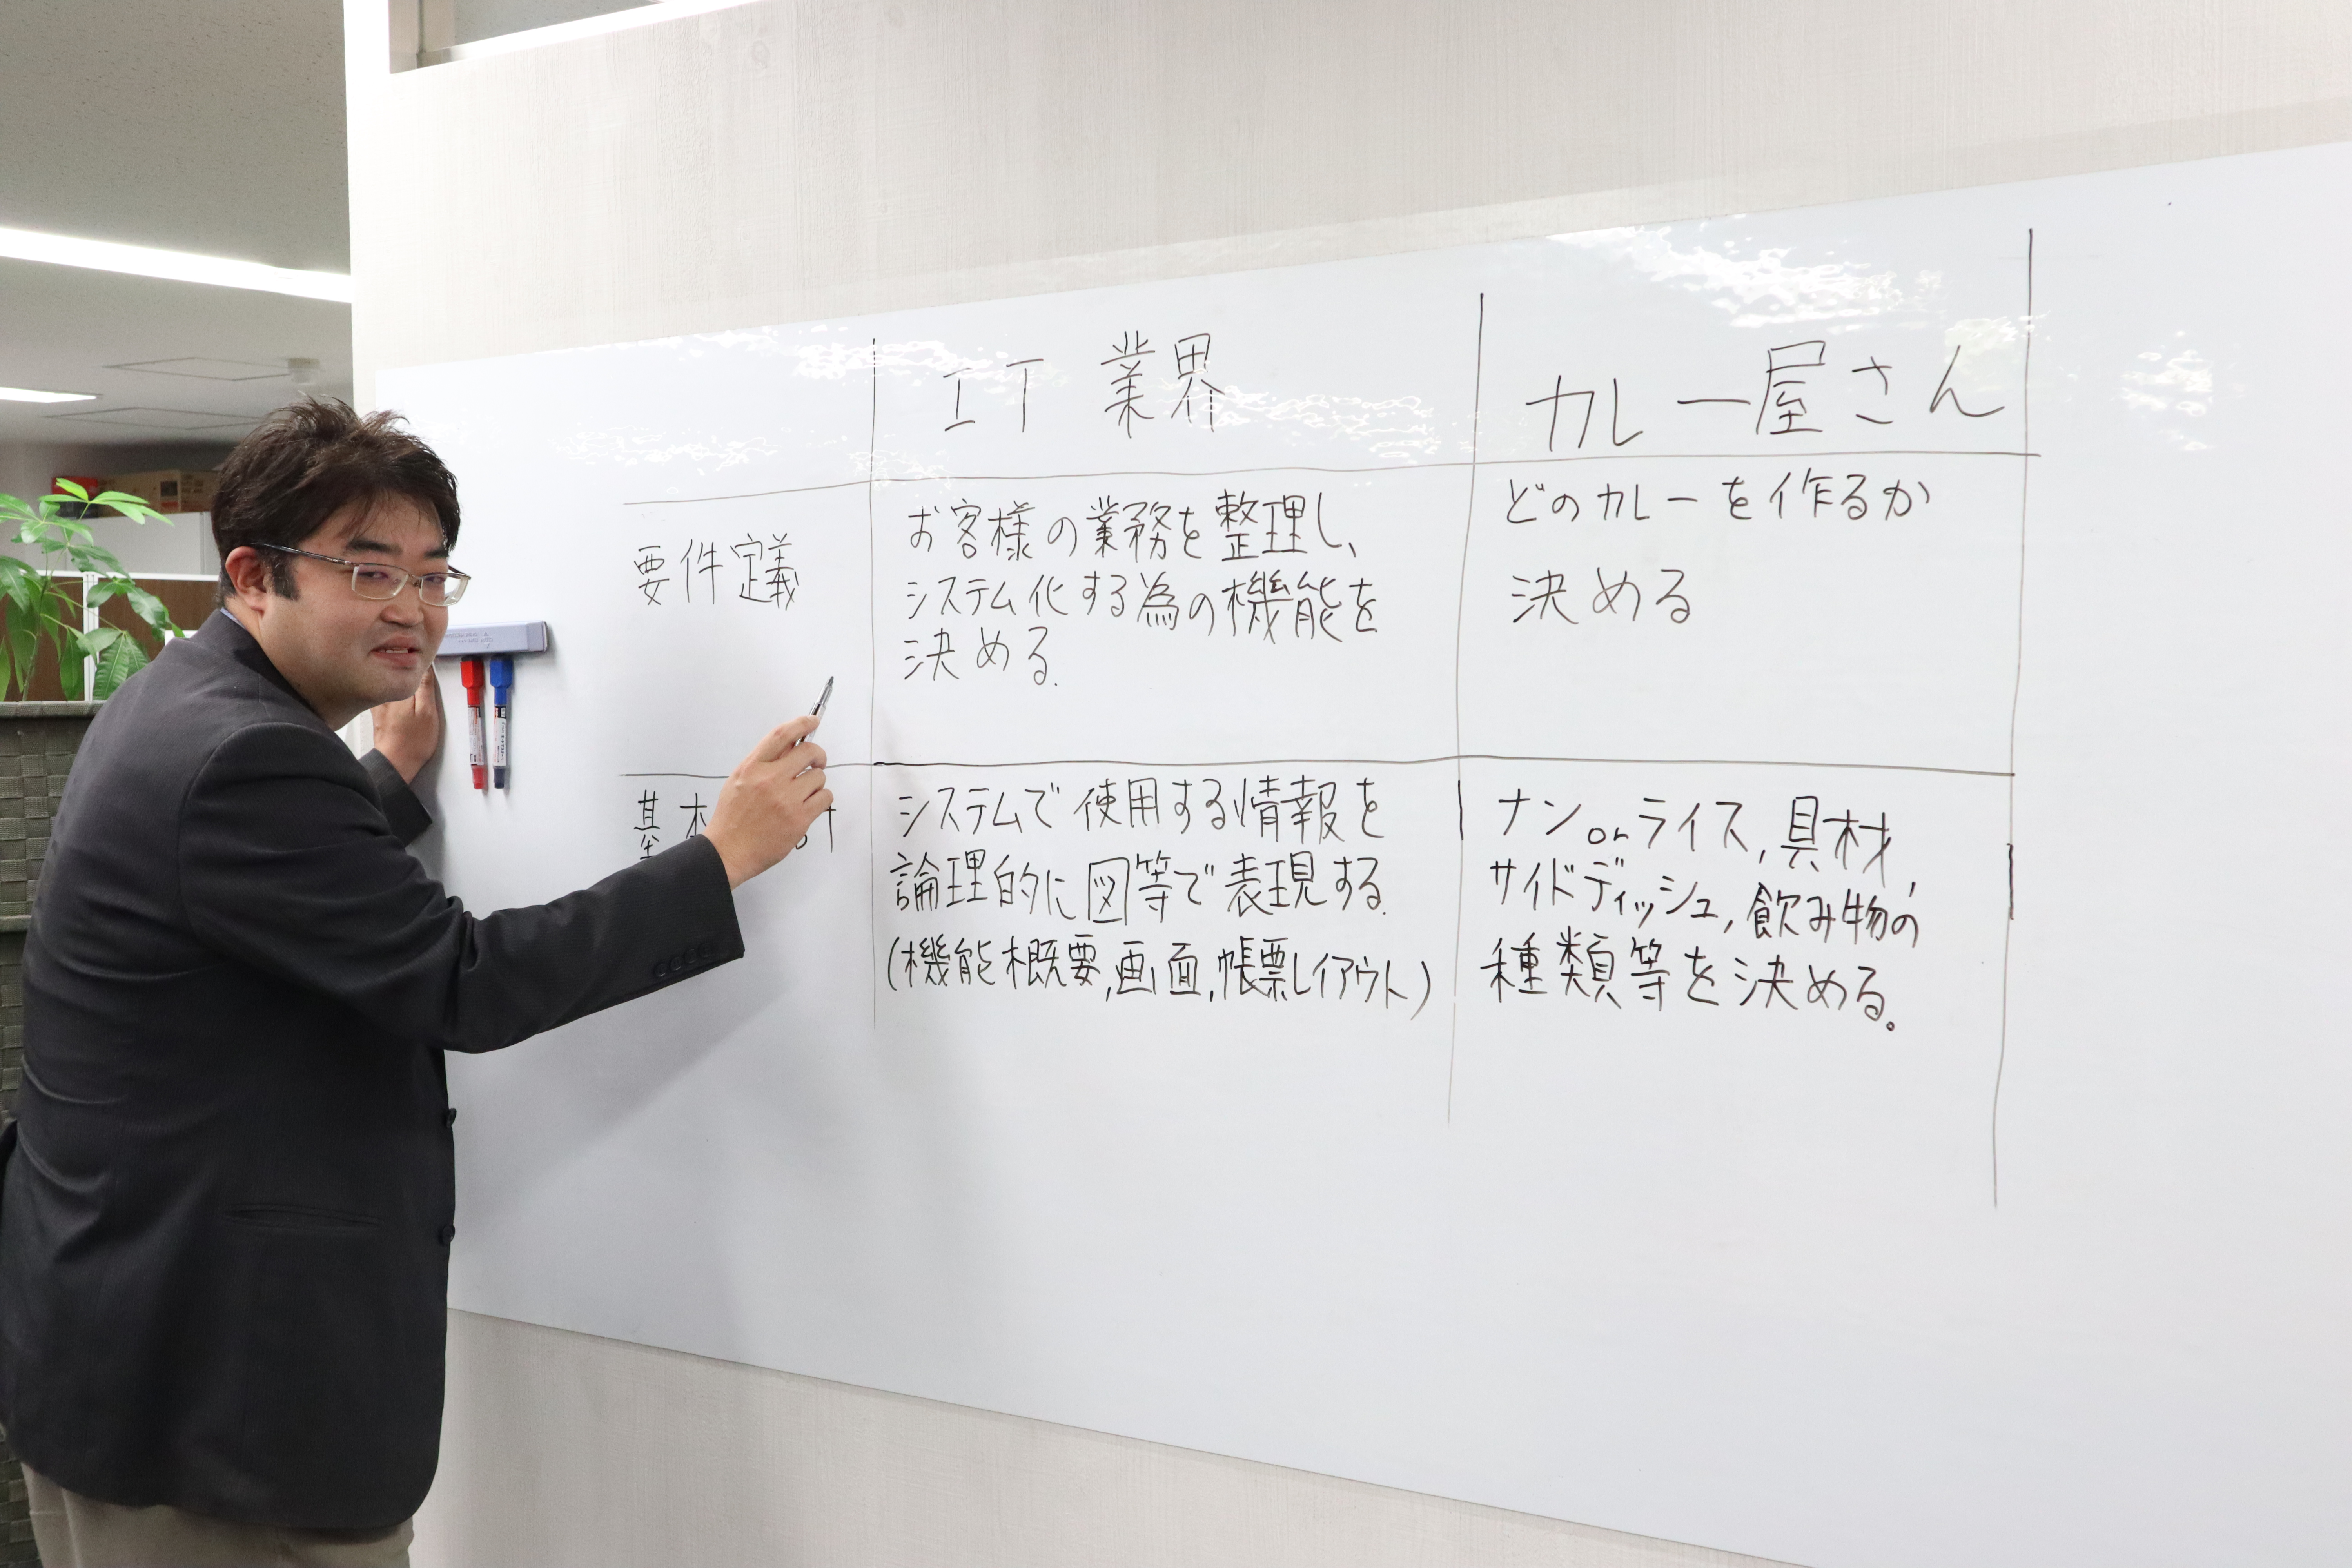 IT 業界
カレー屋さん
要件定義
お客様の業務を整理し、
システム化する為の機能を
決める.
どのカレーを作るか
決める
基本
計
システムで使用する情報を
論理的に図等で表現する.
(機能概要,画面,帳票レイアウト)
ナンorライス,具材,
サイドディッシュ,飲み物の
種類等を決める。